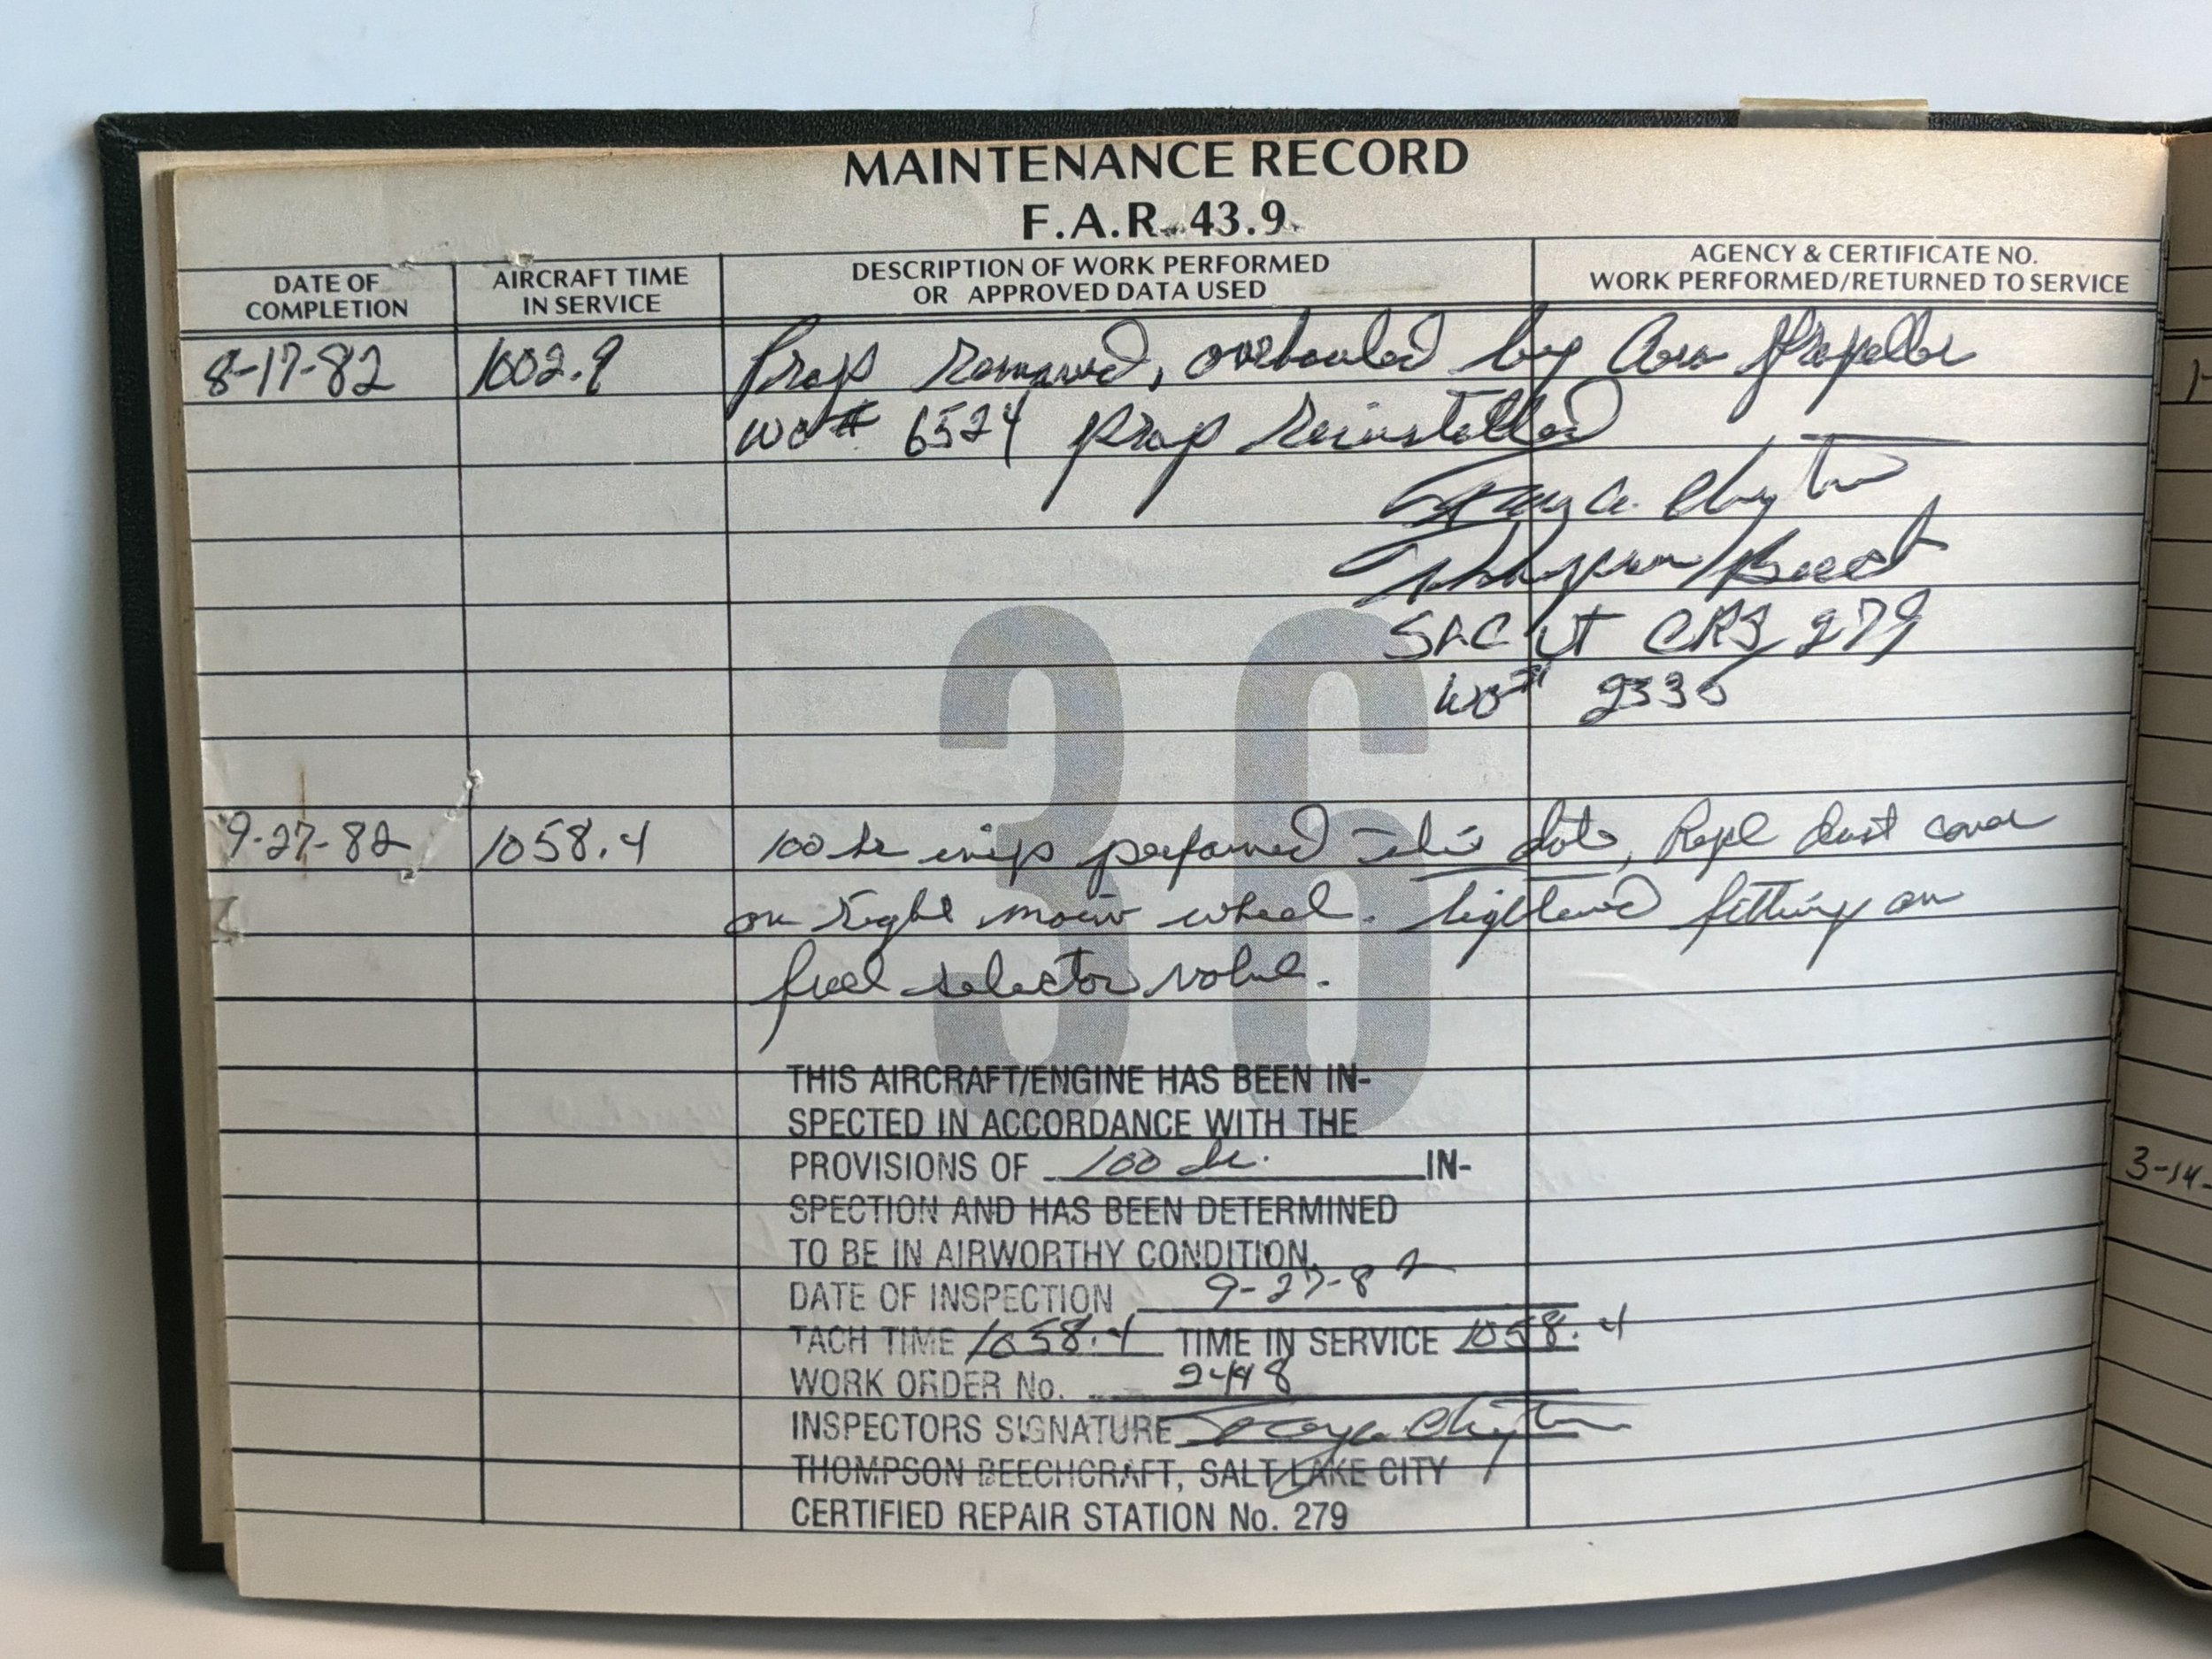 MAINTENANCE RECORD
F.A.R. 43.9
DATE OF COMPLETION
AIRCRAFT TIME IN SERVICE
DESCRIPTION OF WORK PERFORMED OR APPROVED DATA USED
AGENCY & CERTIFICATE NO. WORK PERFORMED/RETURNED TO SERVICE
8-17-82 1002.9 Prop removed, overhauled by Aero Propeller
WO# 6524 prop reinstalled
Thompson Beech
SLC UT CRS 279
WO#
36
9-27-82 1058.4 100 hr insp performed this date, Repl dust cover
on right main wheel. tightened fitting on
fuel selector valve.
THIS AIRCRAFT/ENGINE HAS BEEN IN-
SPECTED IN ACCORDANCE WITH THE
PROVISIONS OF 100 hr. IN-
SPECTION AND HAS BEEN DETERMINED
TO BE IN AIRWORTHY CONDITION.
DATE OF INSPECTION 9-27-82
TACH TIME 1058.4 TIME IN SERVICE 1058.4
WORK ORDER No. 2448
INSPECTORS SIGNATURE
THOMPSON BEECHCRAFT, SALT LAKE CITY
CERTIFIED REPAIR STATION No. 279
1-
3-14-